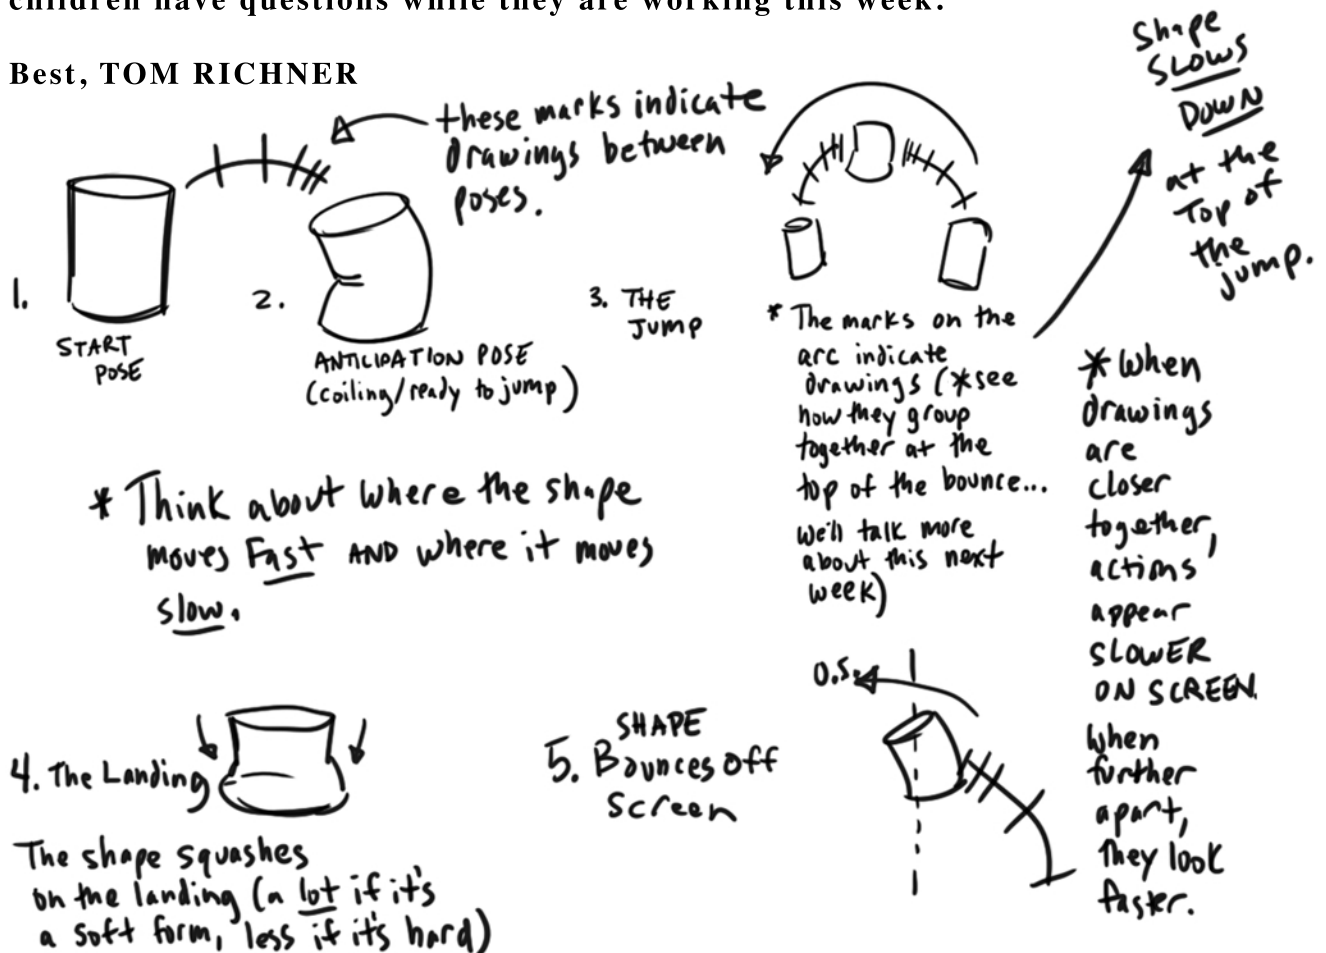 children have questions while they are working this week.
Best, TOM RICHNER
these marks indicate
drawings between
poses.
Shape
SLOWS
DOWN
at the
Top of
the
jump.
1.
START
POSE
2.
ANTICIPATION POSE
(coiling/ready to jump)
3. THE
Jump
* The marks on the
arc indicate
drawings (*see
how they group
together at the
top of the bounce...
we'll talk more
about this next
week)
* When
drawings
are
closer
together,
actions
appear
SLOWER
ON SCREEN.
When
further
apart,
they look
faster.
* Think about where the shape
moves Fast AND where it moves
slow.
4. The Landing
The shape squashes
on the landing (a lot if it's
a soft form, less if it's hard)
5. SHAPE
Bounces off
screen
O.S.